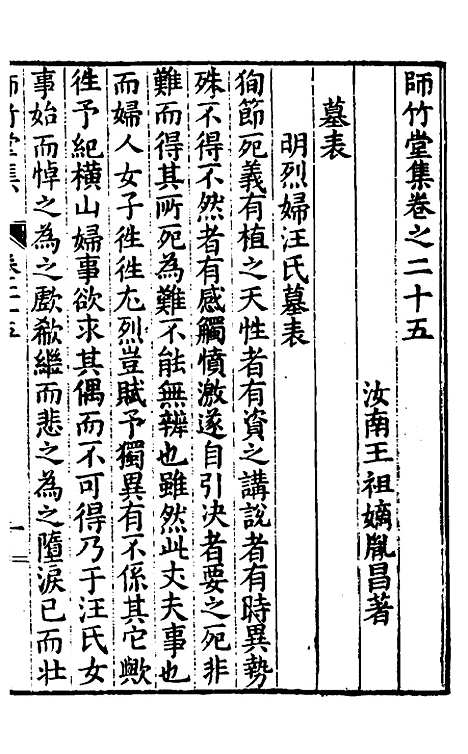 師竹堂集卷之二十五
汝南王祖嫡胤昌著
墓表
明烈婦汪氏墓表
狥節死義有植之天性者有資之講說者有時異勢
殊不得不然者有感觸憤激遂自引决者要之死非
難而得其所死為難不能無辨也雖然此丈夫事也
而婦人女子徃徃尤烈豈賦予獨異有不係其它歟
徃予紀橫山婦事欲求其偶而不可得乃于汪氏女
事始而悼之為之歔欷繼而悲之為之墮淚已而壯
師竹堂集 卷二十五 一